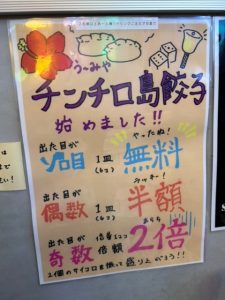 う〜みや
チンチロ島餃子
始めました!!
出た目が
やったね!
ゾロ目 1皿 無料
(6コ)
出た目が
ラッキー!
偶数 1皿 半額
(6コ)
出た目が
奇数 倍額 2倍
2個のサイコロを振って盛り上がろう!!